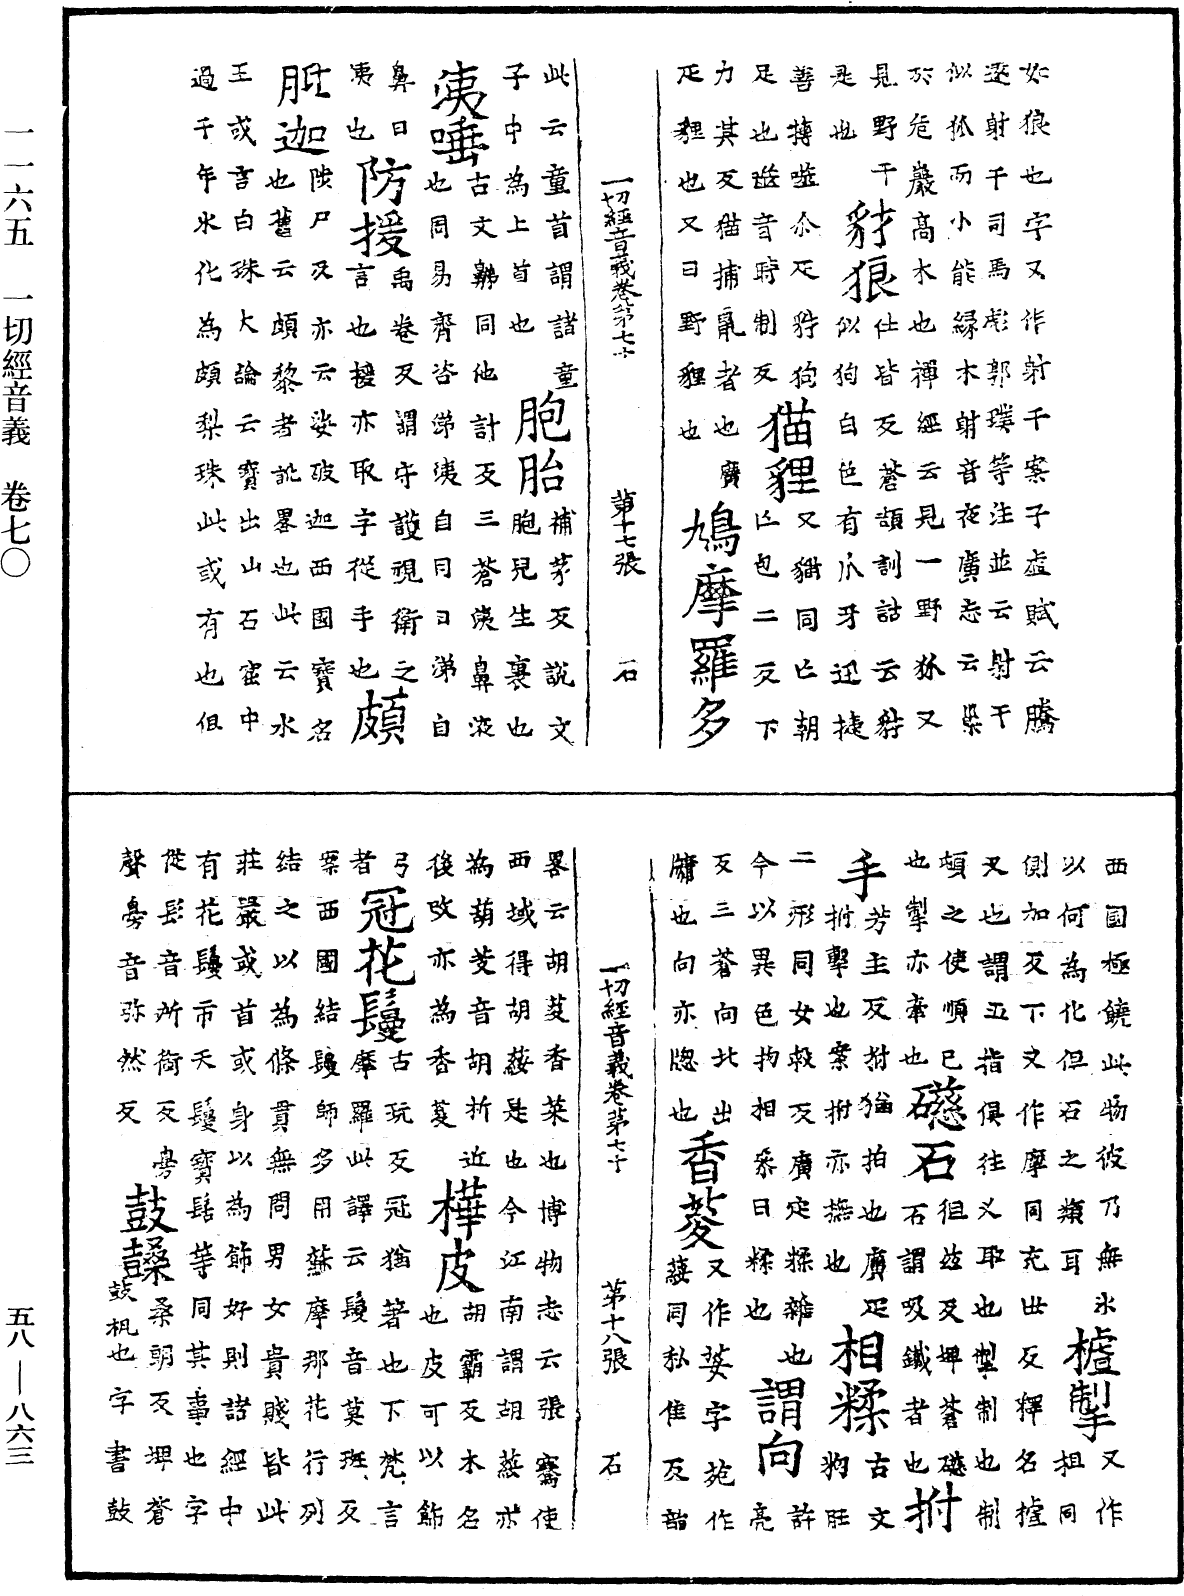 如狼也字又作射干案子虛賦云騰
遠射干司馬彪郭璞等注並云射干
似狐而小能緣木射音夜廣志云巢
於危巖高木也禪經云見一野狐又
見野干 豺狼 仕皆反蒼頡訓詁云豺
似狗白色有爪牙迅捷
是也
善搏噬尒疋豺狗 猫貍 又貓同亡朝
足也噬音時制反 亡包二反下
力其反猫捕鼠者也廣 鳩摩羅多
疋貍也又曰野貍也
一切經音義卷第七十 第十七張 石
此云童首謂諸童 胞胎 補茅反說文
子中為上首也 胞兒生裹也
洟唾 古文鵜同他計反三蒼洟鼻液
也周易齊咨涕洟自目曰涕自
鼻曰 防援 禹卷反謂守護視衛之
洟也 言也援亦取字從手也 頗
胝迦 陟尸反亦云娑破迦西國寶名
也舊云頗黎者訛略也此云水
王或言白珠大論云寶出山石窟中
過千年氷化為頗梨珠此或有也但
西國極饒此物彼乃無氷 樝掣 又作
以何為化但石之類耳 柤同
側加反下文作摩同充世反釋名樝
叉也謂五指俱往叉取也掣制也制
頓之使順己 磁石 徂茲反埤蒼磁
也掣亦牽也 石謂吸鐵者也 拊
手 芳主反拊猶拍也廣疋 相糅 古文
拊擊也案拊亦撫也 粈肚
二形同女救反廣定糅雜也 謂向 許亮
今以異色拘相參曰糅也
反三蒼向北出 香荾 又作荽字苑作
牖也向亦牕也 䕑同私隹反韻
一切經音義卷第七十 第十八張 石
畧云胡荾香菜也博物志云張騫使
西域得胡䕑是也今江南謂胡䕑亦
為葫荾音胡折近 樺皮 胡霸反木名
後改亦為香荾 也皮可以飾
弓 冠花鬘 古玩反冠猶著也下梵言
者 摩羅此譯云鬘音莫班反
案西國結鬘師多用蘇摩那花行列
結之以為條貫無問男女貴賤皆此
莊嚴或首或身以為飾好則諸經中
有花鬘市天鬘寶髻等同其事也字
從髟音所銜反㝱 鼓䫦 桑朗反埤蒼
聲㝱音弥然反 鼓枫也字書鼓
一一六五 一切經音義 卷七〇
五八—八六三